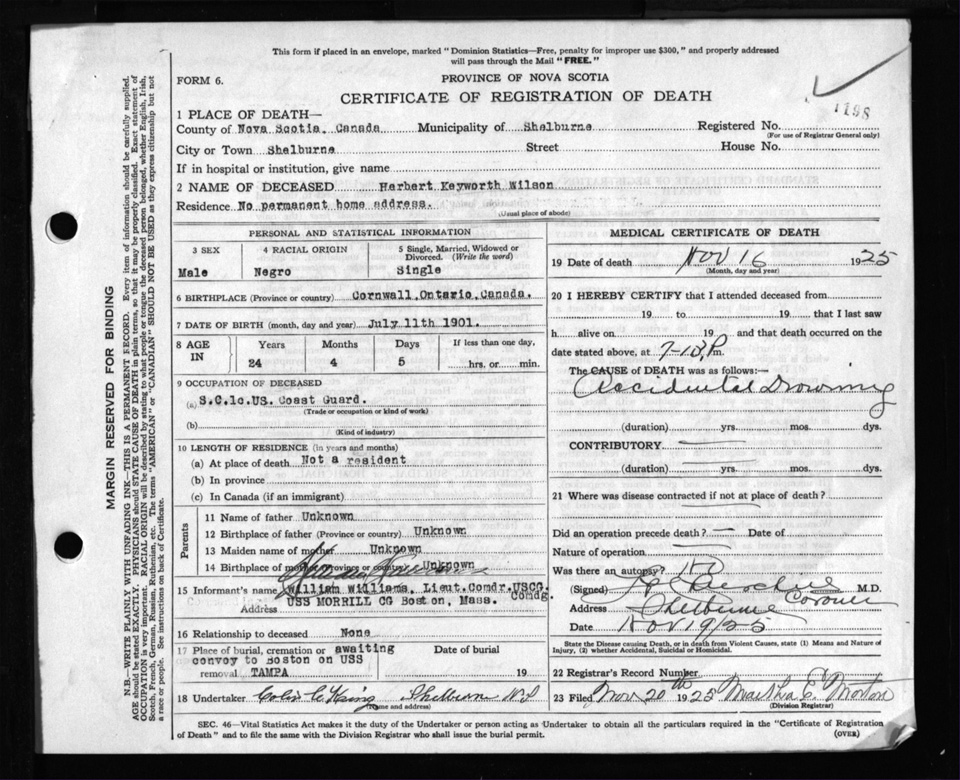 This form if placed in an envelope, marked "Dominion Statistics—Free, penalty for improper use $300," and properly addressed
will pass through the Mail "FREE."
FORM 6.
PROVINCE OF NOVA SCOTIA
1198
CERTIFICATE OF REGISTRATION OF DEATH
1 PLACE OF DEATH—
County of Nova Scotia. Canada Municipality of Shelburne Registered No.
(For use of Registrar General only)
City or Town Shelburne Street House No.
If in hospital or institution, give name
2 NAME OF DECEASED Herbert Keyworth Wilson
Residence No permanent home address.
(Usual place of abode)
PERSONAL AND STATISTICAL INFORMATION
3 SEX 4 RACIAL ORIGIN 5 Single, Married, Widowed or
Divorced. (Write the word)
Male Negro Single
6 BIRTHPLACE (Province or country) Cornwall,Ontario,Canada.
7 DATE OF BIRTH (month, day and year) July 11th 1901.
8 AGE
IN
Years Months Days If less than one day,
24 4 5 hrs. or min.
9 OCCUPATION OF DECEASED
(a) S.C.1c.US. Coast Guard.
(Trade or occupation or kind of work)
(b)
(Kind of industry)
10 LENGTH OF RESIDENCE (in years and months)
(a) At place of death Not a resident
(b) In province
(c) In Canada (if an immigrant)
Parents
11 Name of father Unknown
12 Birthplace of father (Province or country) Unknown
13 Maiden name of mother Unknown
14 Birthplace of mother (Province or country) Unknown
15 Informant's name William Williams, Lieut.Comdr.USCG.
Comdg.
Address USS MORRILL CG Boston, Mass.
16 Relationship to deceased None
17 Place of burial, cremation or awaiting Date of burial
convoy to Boston on USS
removal TAMPA 19
18 Undertaker Shelburne N.S
(Name and address)
MEDICAL CERTIFICATE OF DEATH
19 Date of death Nov 16 1925
(Month, day and year)
20 I HEREBY CERTIFY that I attended deceased from
19 to 19 that I last saw
h alive on 19 and that death occurred on the
date stated above, at 7-15 P m.
The CAUSE of DEATH was as follows:—
Accidental Drowning
(duration) yrs. mos. dys.
CONTRIBUTORY
(duration) yrs. mos. dys.
21 Where was disease contracted if not at place of death?
Did an operation precede death? Date of
Nature of operation
Was there an autopsy? No
(Signed) M.D.
Coroner
Address Shelburne
Date Nov 19/25
State the Disease causing Death, or in death from Violent Causes, state (1) Means and Nature of
Injury, (2) whether Accidental, Suicidal or Homicidal.
22 Registrar's Record Number
23 Filed Nov 20th 1925 Martha E. Morton
(Division Registrar)
SEC. 46—Vital Statistics Act makes it the duty of the Undertaker or person acting as Undertaker to obtain all the particulars required in the "Certificate of Registration
of Death" and to file the same with the Division Registrar who shall issue the burial permit. (OVER)
MARGIN RESERVED FOR BINDING
N.B.—WRITE PLAINLY WITH UNFADING INK—THIS IS A PERMANENT RECORD. Every item of information should be carefully supplied.
AGE should be stated EXACTLY. PHYSICIANS should STATE CAUSE OF DEATH in plain terms, so that it may be properly classified. Exact statement of
OCCUPATION is very important. RACIAL ORIGIN will be described by stating to what people or tongue the deceased person belonged, whether English, Irish,
Scotch, French, German, Russian, Ruthenian, etc. The terms "AMERICAN" or "CANADIAN" SHOULD NOT BE USED as they express citizenship but not
a race or people. See instructions on back of Certificate.